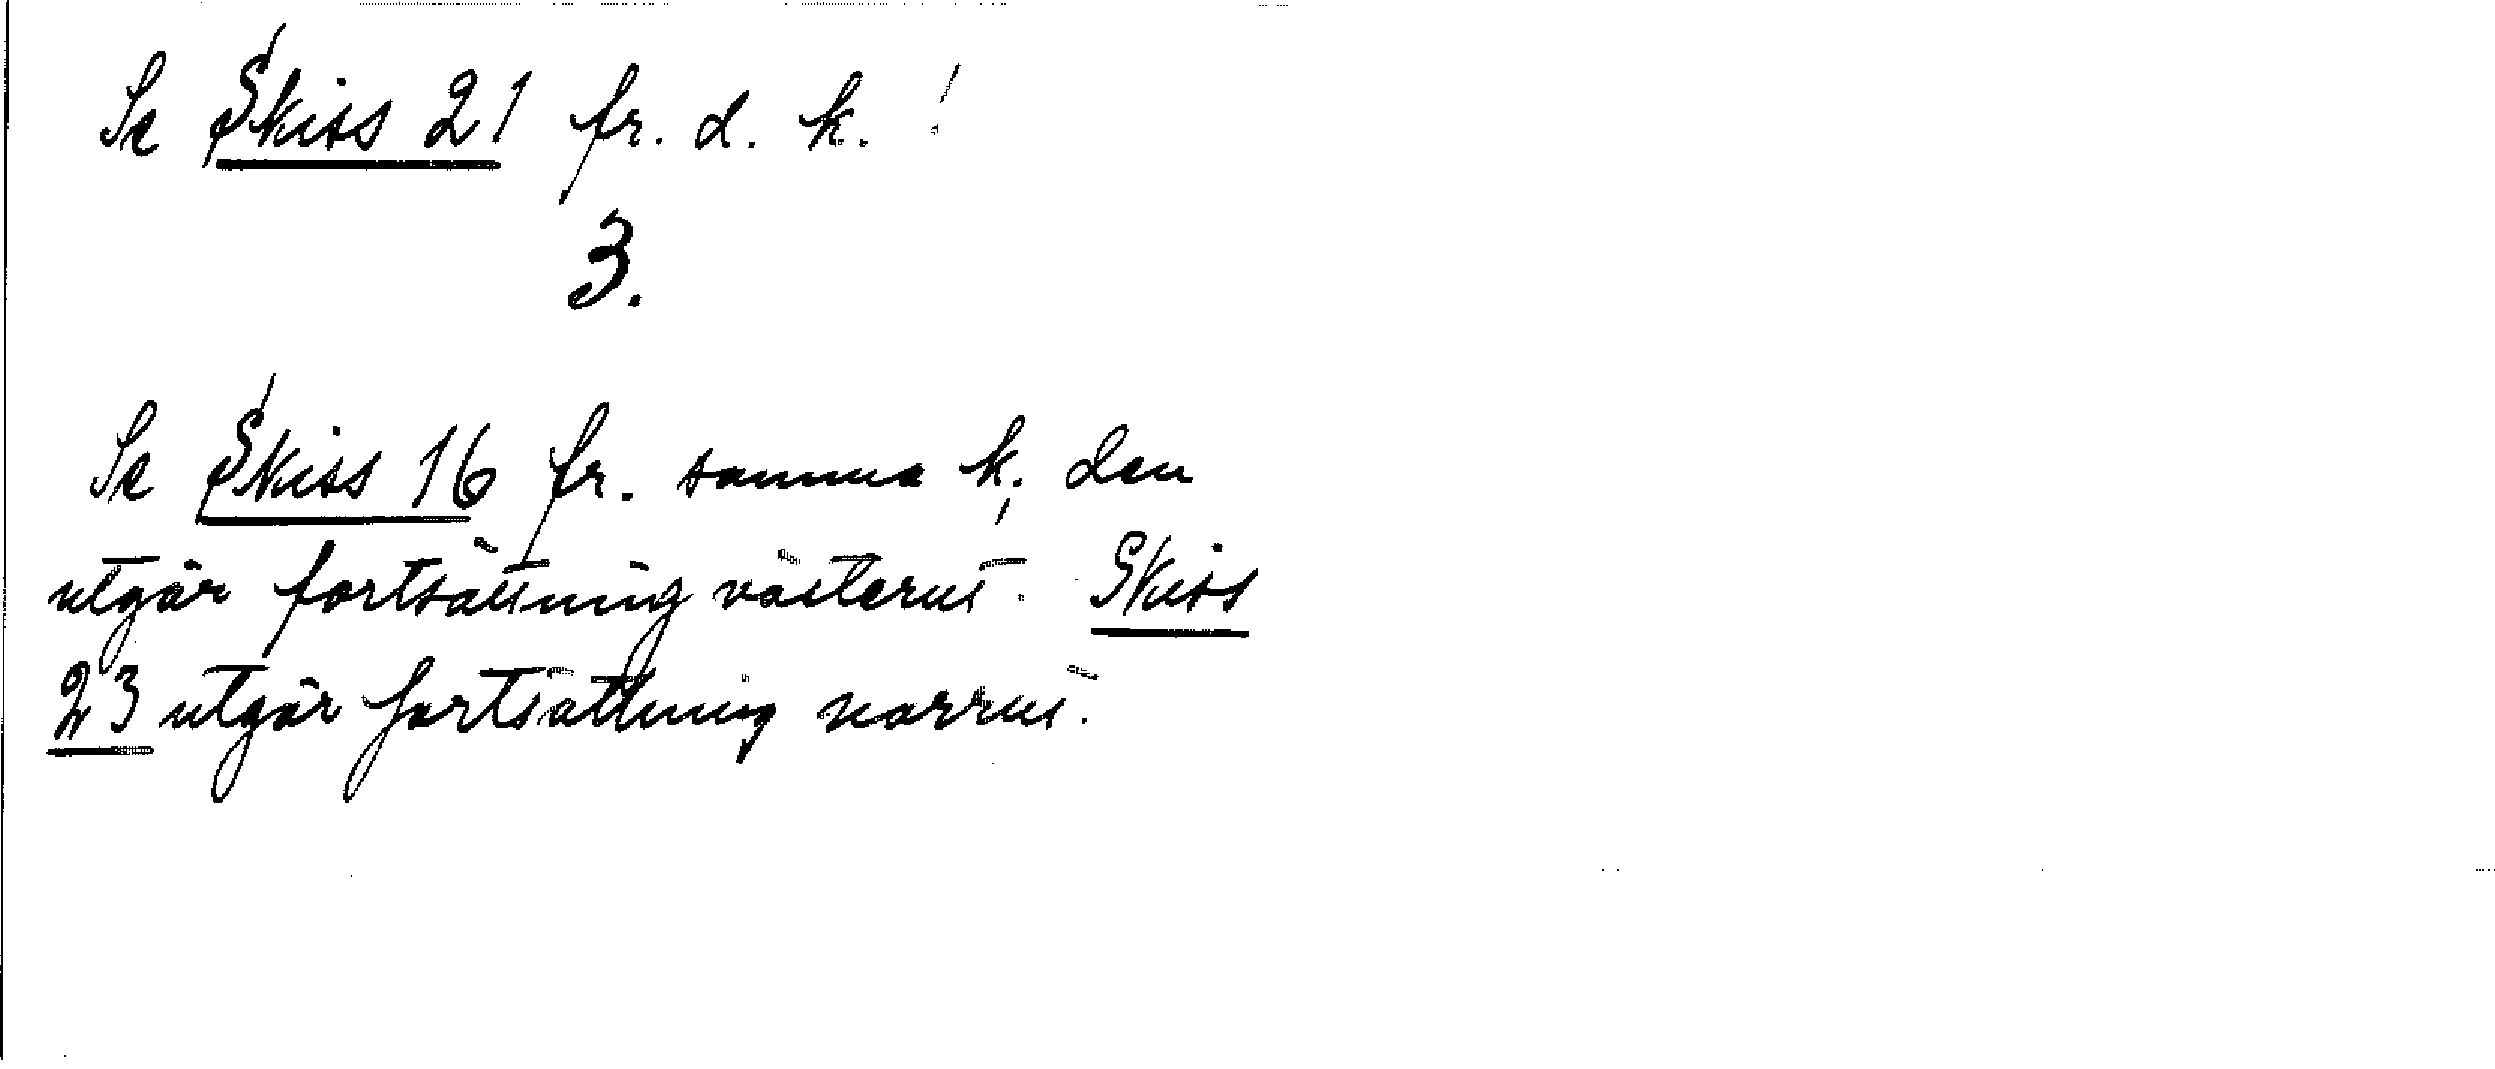 Se Skiss 21 fr. d. k. !
3.
Se Skiss 16 fr. samma k; den
utgör fortsättning västerut. Skiss
23 utgör fortsättning norrut.